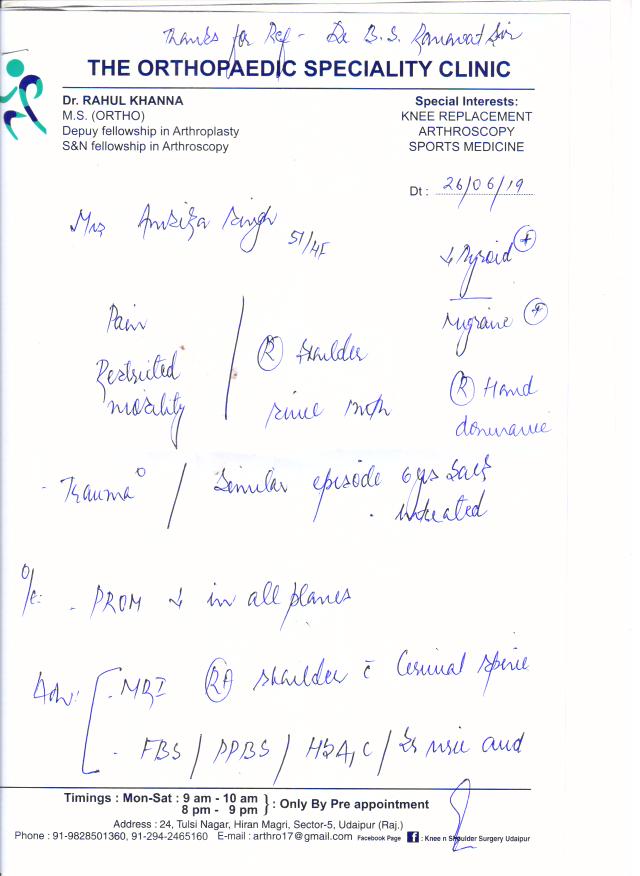 Thanks for Ref - Dr B.S. Ranawat Sir
THE ORTHOPAEDIC SPECIALITY CLINIC
Dr. RAHUL KHANNA
M.S. (ORTHO)
Depuy fellowship in Arthroplasty
S&N fellowship in Arthroscopy
Special Interests:
KNEE REPLACEMENT
ARTHROSCOPY
SPORTS MEDICINE
Dt : 26/06/19
Mrs Singh
↓ Thyroid (+)
Migraine (+)
(R) Hand
dominance
Pain
Restricted
mobility
(R) Shoulder
since
- Trauma° / Similar episode 6 yrs back
untreated
O/E: - PROM ↓ in all planes
Adv: - MRI (Rt) shoulder c̄ Cervical spine
- FBS / PPBS / HbA1C / Sr uric acid
Timings : Mon-Sat : 9 am - 10 am
8 pm - 9 pm } : Only By Pre appointment
Address : 24, Tulsi Nagar, Hiran Magri, Sector-5, Udaipur (Raj.)
Phone : 91-9828501360, 91-294-2465160 E-mail : arthro17@gmail.com Facebook Page f : Knee n Shoulder Surgery Udaipur